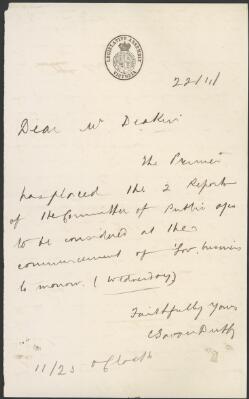 LEGISLATIVE ASSEMBLY
VICTORIA
22/11/
Dear Mr Deakin
The Premier
has placed the 2 Reports
of the Committee of Public
to be considered at the
commencement of Gov. business
to morrow. (Wednesday)
Faithfully Yours
C Gavan Duffy
11/25 o'clock